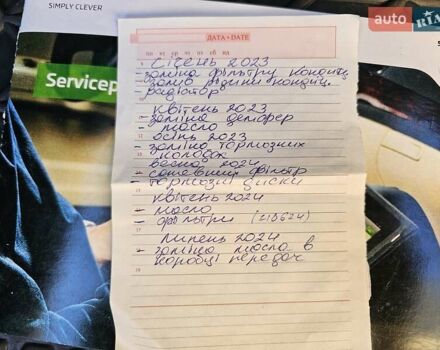 SIMPLY CLEVER
auto RIA
ДАТА • DATE
пн вт ср чт пт сб нд
Servicep
січень 2023
- заміна фільтру кондиц.
- залив рідини кондиц.
- радіатор
квітень 2023
- заміна демфер
- масло
осінь 2023
- заміна тормозних
колодок
весна 2024
- фільтр
- тормозні диски
квітень 2024
- масло
- фільтри (218624)
Липень 2024
- заміна масла в
коробці передач